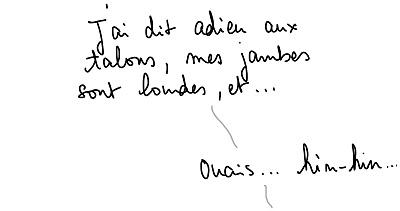 J'ai dit adieu aux
talons, mes jambes
sont lourdes, et...
Ouais... hin-hin...